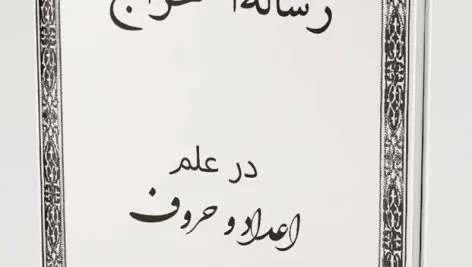 رساله
در علم
اعداد و حروف